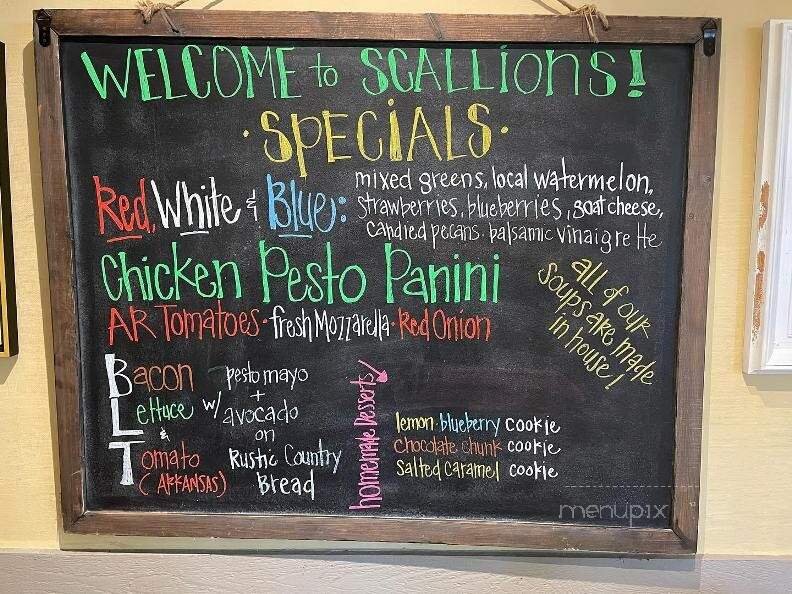 WELCOME to SCALLIONS!
·SPECIALS·
Red, White & Blue: mixed greens, local watermelon,
strawberries, blueberries, goat cheese,
candied pecans · balsamic vinaigrette
Chicken Pesto Panini
AR Tomatoes · fresh Mozzarella · Red Onion
all of our
soups are made
in house!
Bacon
Lettuce
&
Tomato
(ARKANSAS)
w/ pesto mayo
+
avocado
on
Rustic Country
Bread
homemade Desserts
lemon · blueberry cookie
chocolate chunk cookie
Salted caramel cookie
menupix